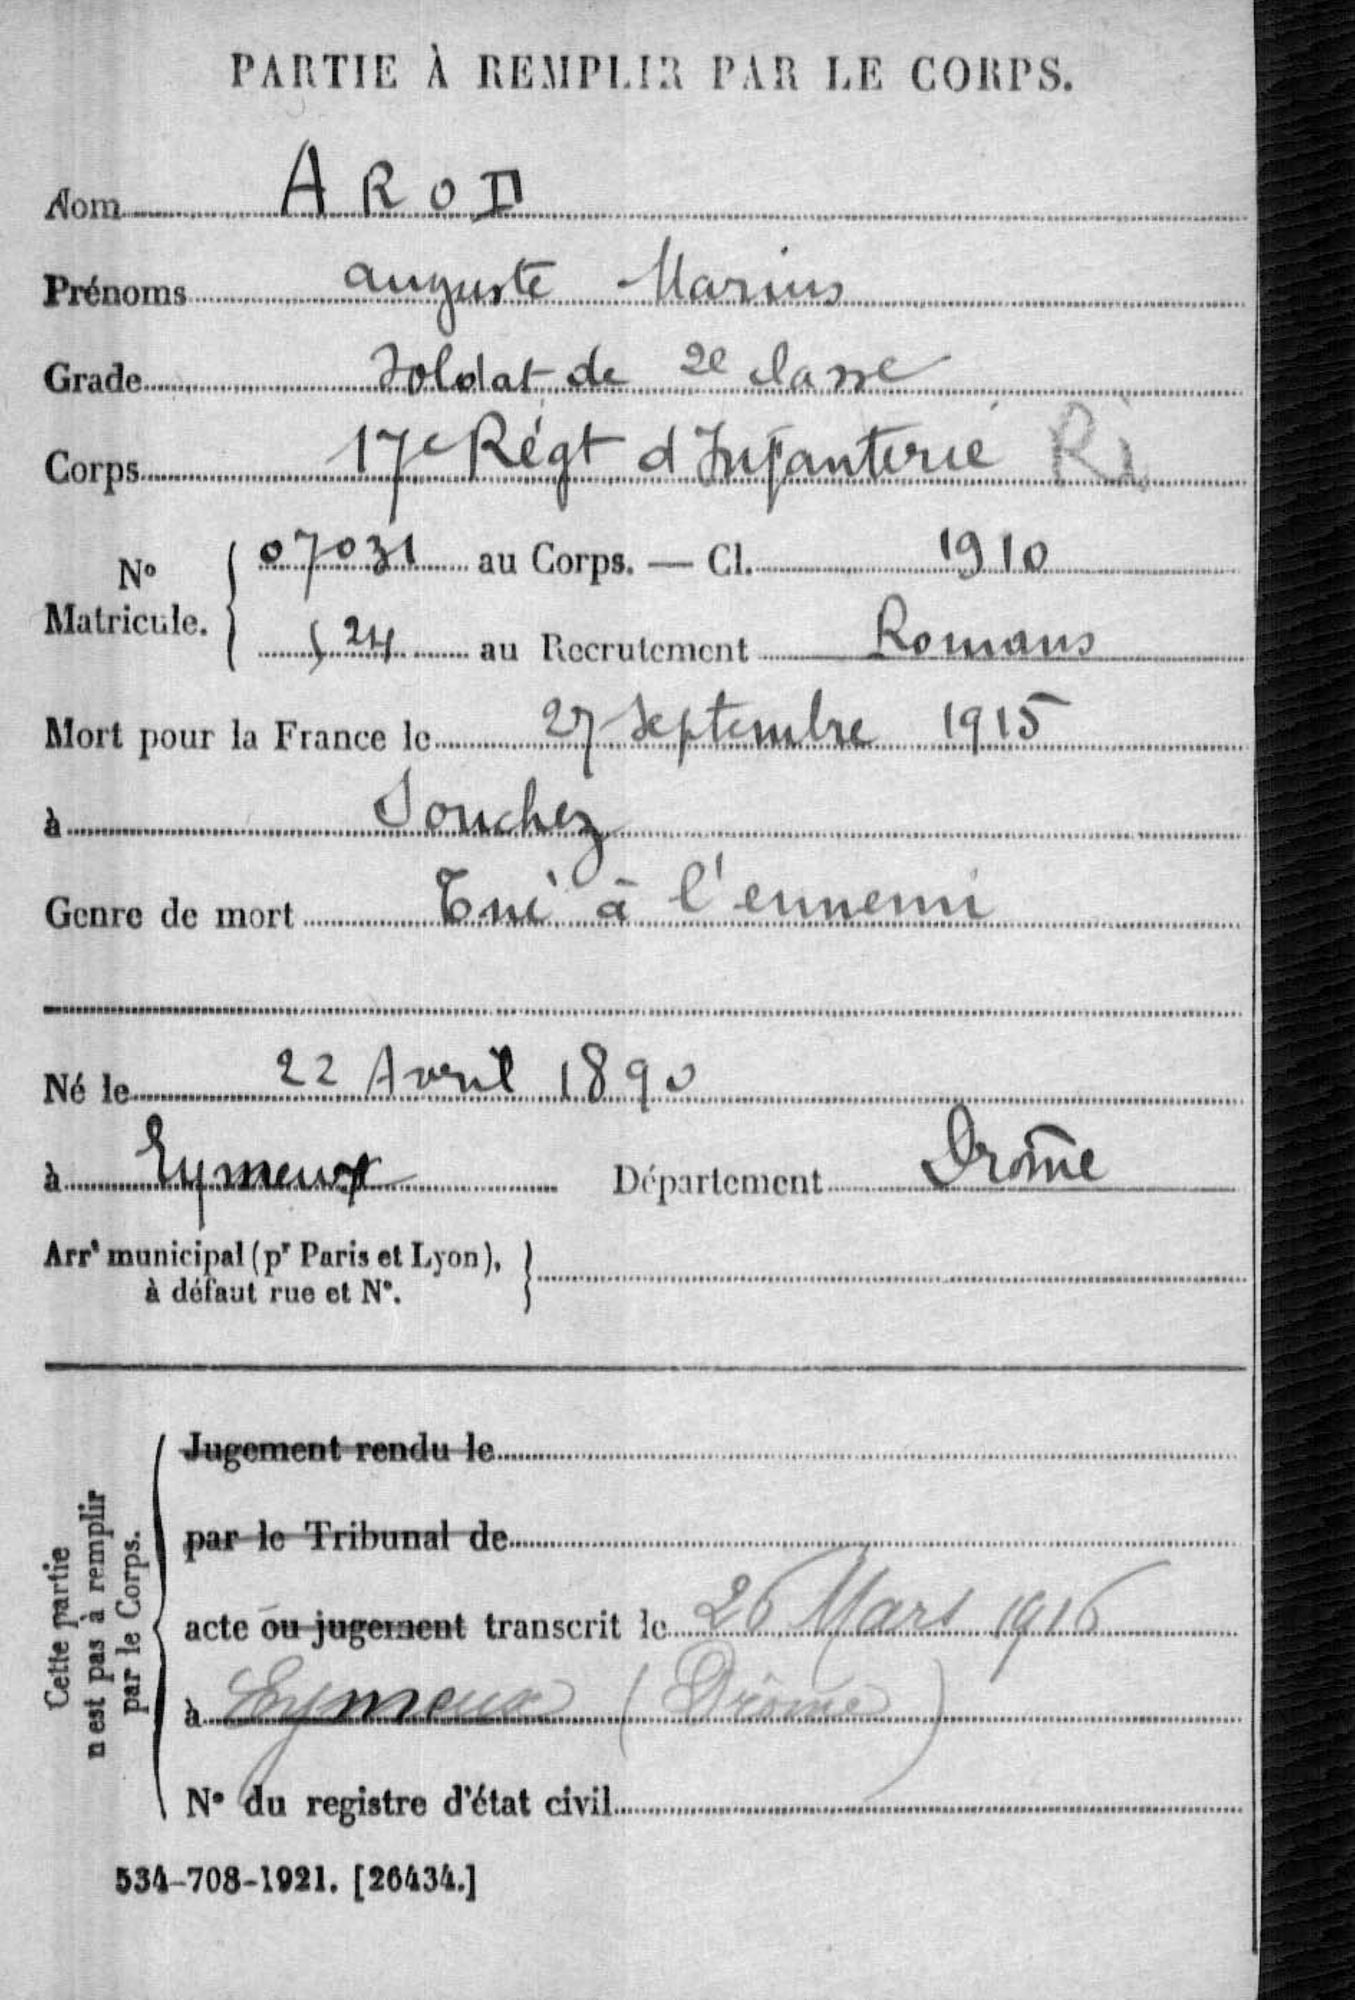 PARTIE À REMPLIR PAR LE CORPS.
Nom AROD
Prénoms Auguste Marius
Grade Soldat de 2e classe
Corps 17e Régt d'Infanterie Ri
No Matricule. { 07031 au Corps. — Cl. 1910
524 au Recrutement Romans
Mort pour la France le 27 Septembre 1915
à Souchez
Genre de mort Tué à l'ennemi
Né le 22 Avril 1890
à Eymeux Département Drôme
Arrt municipal (pr Paris et Lyon), }
à défaut rue et N°.
Cette partie
n'est pas à remplir
par le Corps.
Jugement rendu le
par le Tribunal de
acte ou jugement transcrit le 26 Mars 1916
à Eymeux (Drôme)
N° du registre d'état civil
534-708-1921. [26434.]